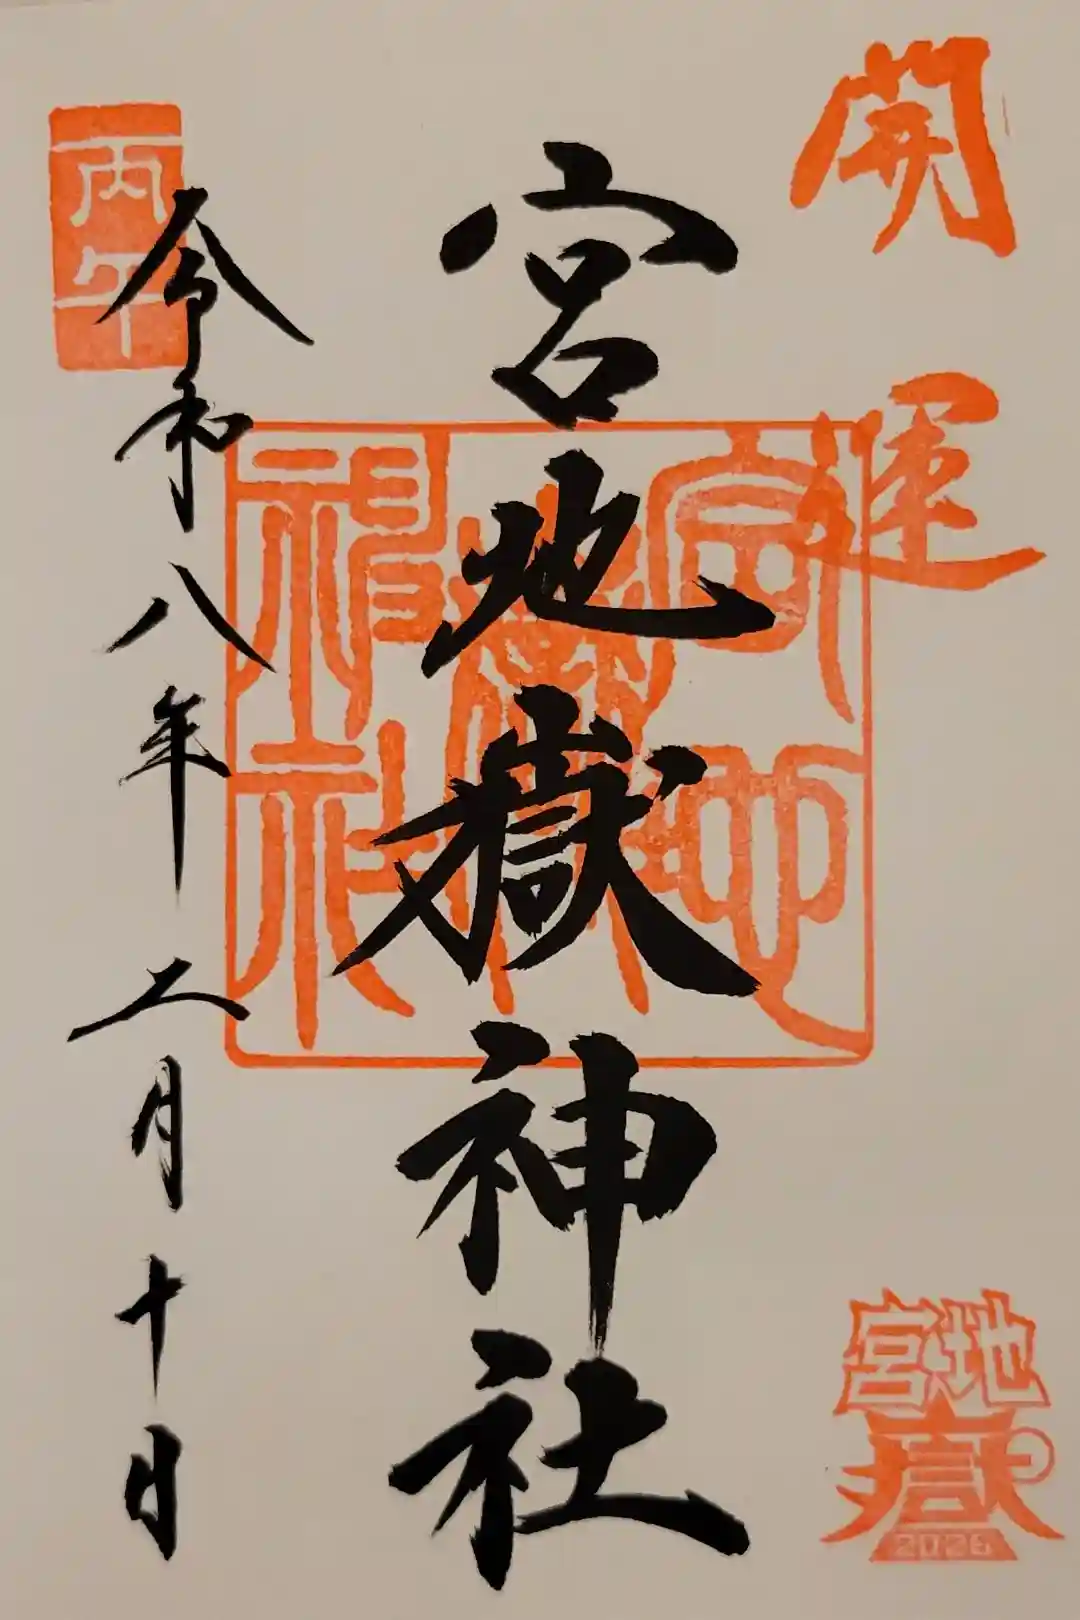 開運
宮地嶽神社
宮地
嶽
神社
令和八年二月十日
丙午
宮地
嶽
2026